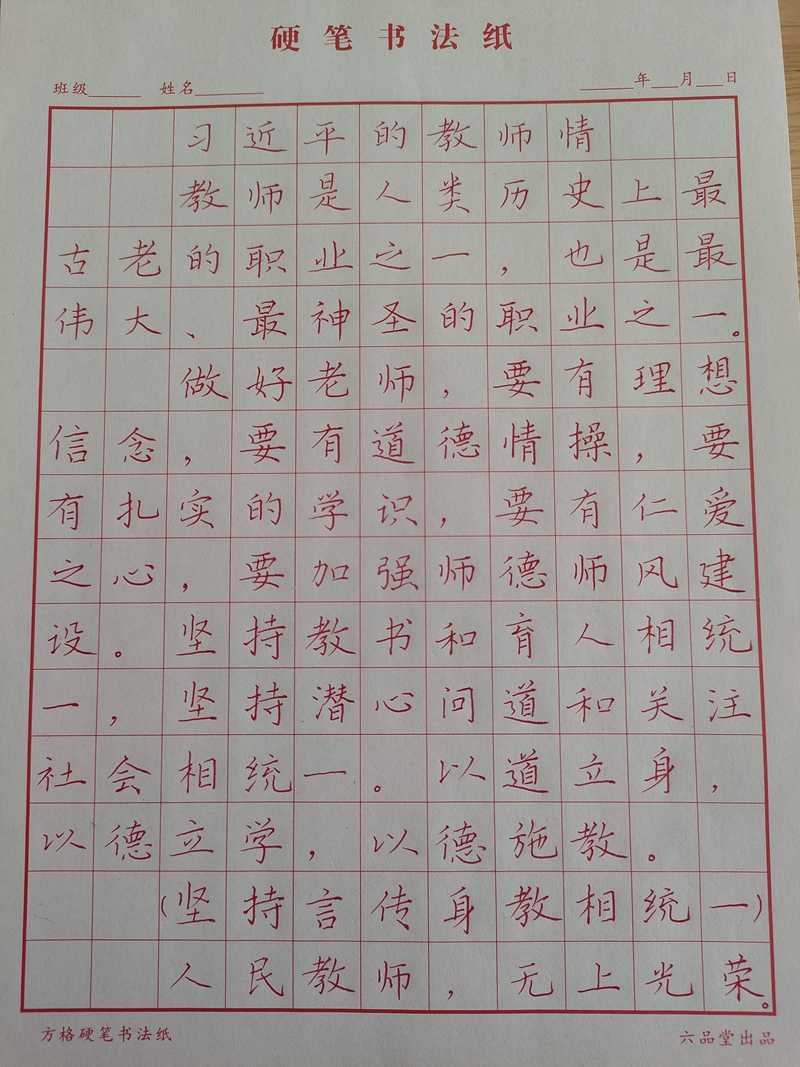 硬笔书法纸
班级 姓名 年 月 日
习近平的教师情
教师是人类历史上最
古老的职业之一，也是最
伟大、最神圣的职业之一。
做好老师，要有理想
信念，要有道德情操，要
有扎实的学识，要有仁爱
之心，要加强师德师风建
设。坚持教书和育人相统
一，坚持潜心问道和关注
社会相统一。以道立身，
以德立学，以德施教。
（坚持言传身教相统一）
人民教师，无上光荣。
方格硬笔书法纸 六品堂出品